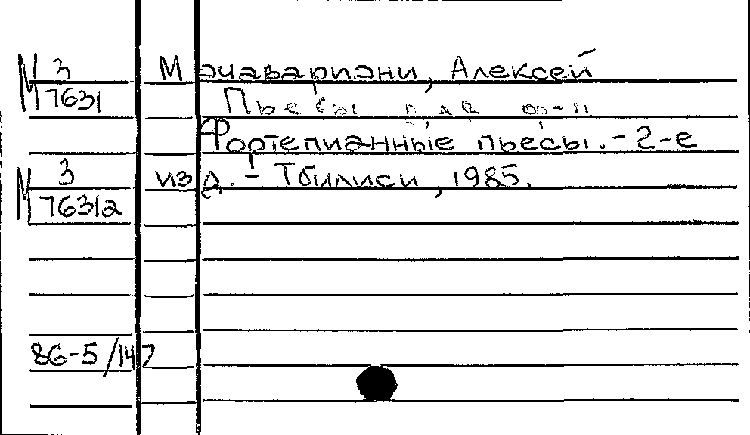 М 3
7631
Мачавариани, Алексей
Пьесы для ф-п
Фортепианные пьесы. - 2-е
М 3
7631а
изд. - Тбилиси, 1985.
86-5/147